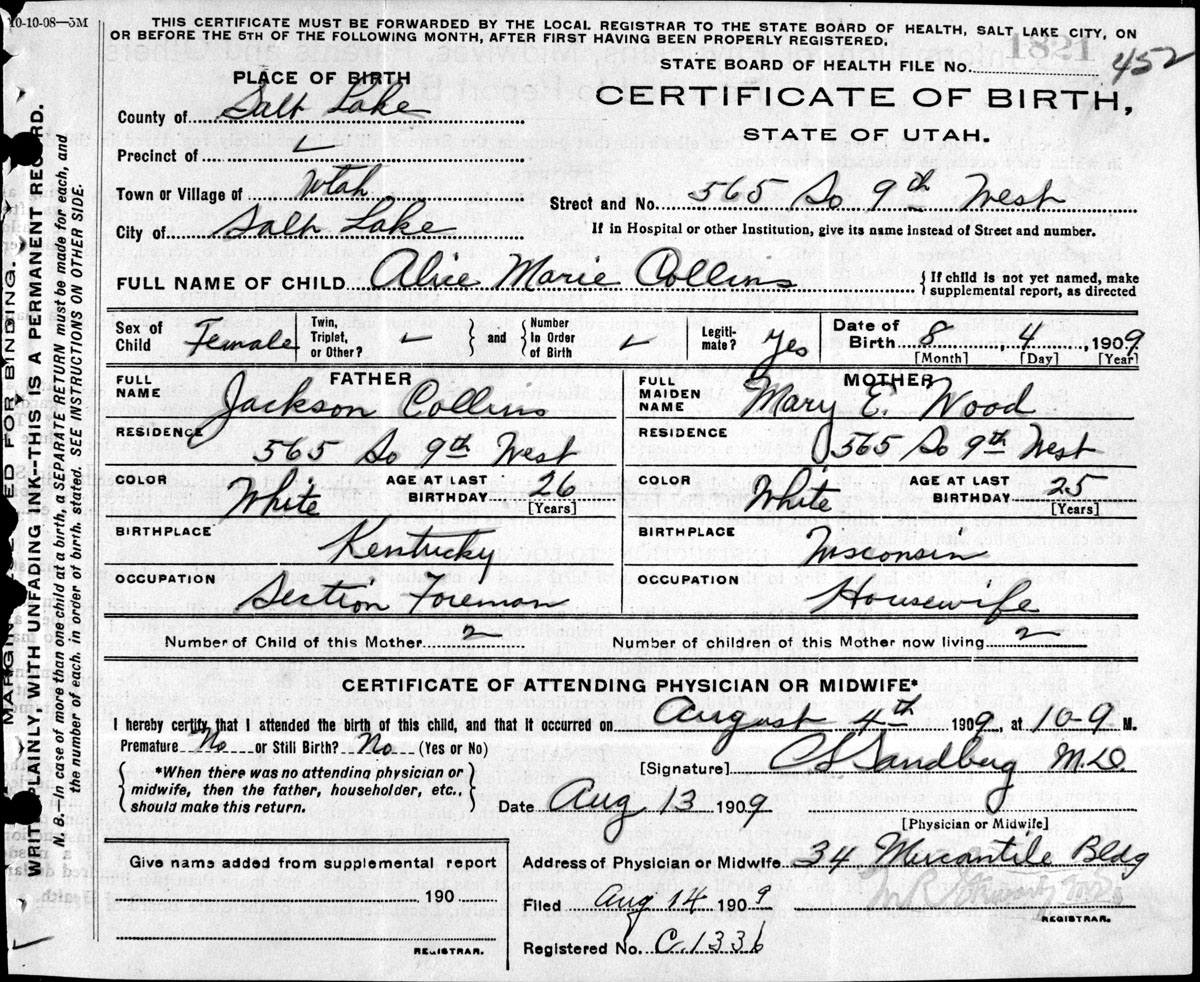 10-10-08—5M
THIS CERTIFICATE MUST BE FORWARDED BY THE LOCAL REGISTRAR TO THE STATE BOARD OF HEALTH, SALT LAKE CITY, ON
OR BEFORE THE 5TH OF THE FOLLOWING MONTH, AFTER FIRST HAVING BEEN PROPERLY REGISTERED.
1821
STATE BOARD OF HEALTH FILE No. 452
CERTIFICATE OF BIRTH,
STATE OF UTAH.
PLACE OF BIRTH
County of Salt Lake
Precinct of ✓
Town or Village of Utah
Street and No. 565 So 9th West
City of Salt Lake
If in Hospital or other Institution, give its name instead of Street and number.
FULL NAME OF CHILD Alice Marie Collins
{If child is not yet named, make
supplemental report, as directed
Sex of Child Female
Twin, Triplet, or Other? ✓ } and { Number In Order of Birth ✓
Legiti-mate? Yes
Date of Birth 8, 4, 1909
[Month] [Day] [Year]
FATHER
FULL NAME Jackson Collins
RESIDENCE 565 So 9th West
COLOR White
AGE AT LAST BIRTHDAY 26
[Years]
BIRTHPLACE Kentucky
OCCUPATION Section Foreman
MOTHER
FULL MAIDEN NAME Mary E. Wood
RESIDENCE 565 So 9th West
COLOR White
AGE AT LAST BIRTHDAY 25
[Years]
BIRTHPLACE Wisconsin
OCCUPATION Housewife
Number of Child of this Mother 2
Number of children of this Mother now living 2
CERTIFICATE OF ATTENDING PHYSICIAN OR MIDWIFE*
I hereby certify that I attended the birth of this child, and that it occurred on August 4th 1909 at 10-9 M.
Premature No or Still Birth? No (Yes or No)
{*When there was no attending physician or
midwife, then the father, householder, etc.,
should make this return.}
[Signature] CS Sandberg M.D.
Date Aug 13 1909
[Physician or Midwife]
Give name added from supplemental report
190
REGISTRAR.
Address of Physician or Midwife 34 Mercantile Bldg
Filed Aug 14 1909
REGISTRAR.
Registered No. C.1336
MARGIN ED FOR BINDING.
WRITE PLAINLY, WITH UNFADING INK--THIS IS A PERMANENT RECORD.
N. B.—In case of more than one child at a birth, a SEPARATE RETURN must be made for each, and
the number of each, in order of birth, stated. SEE INSTRUCTIONS ON OTHER SIDE.